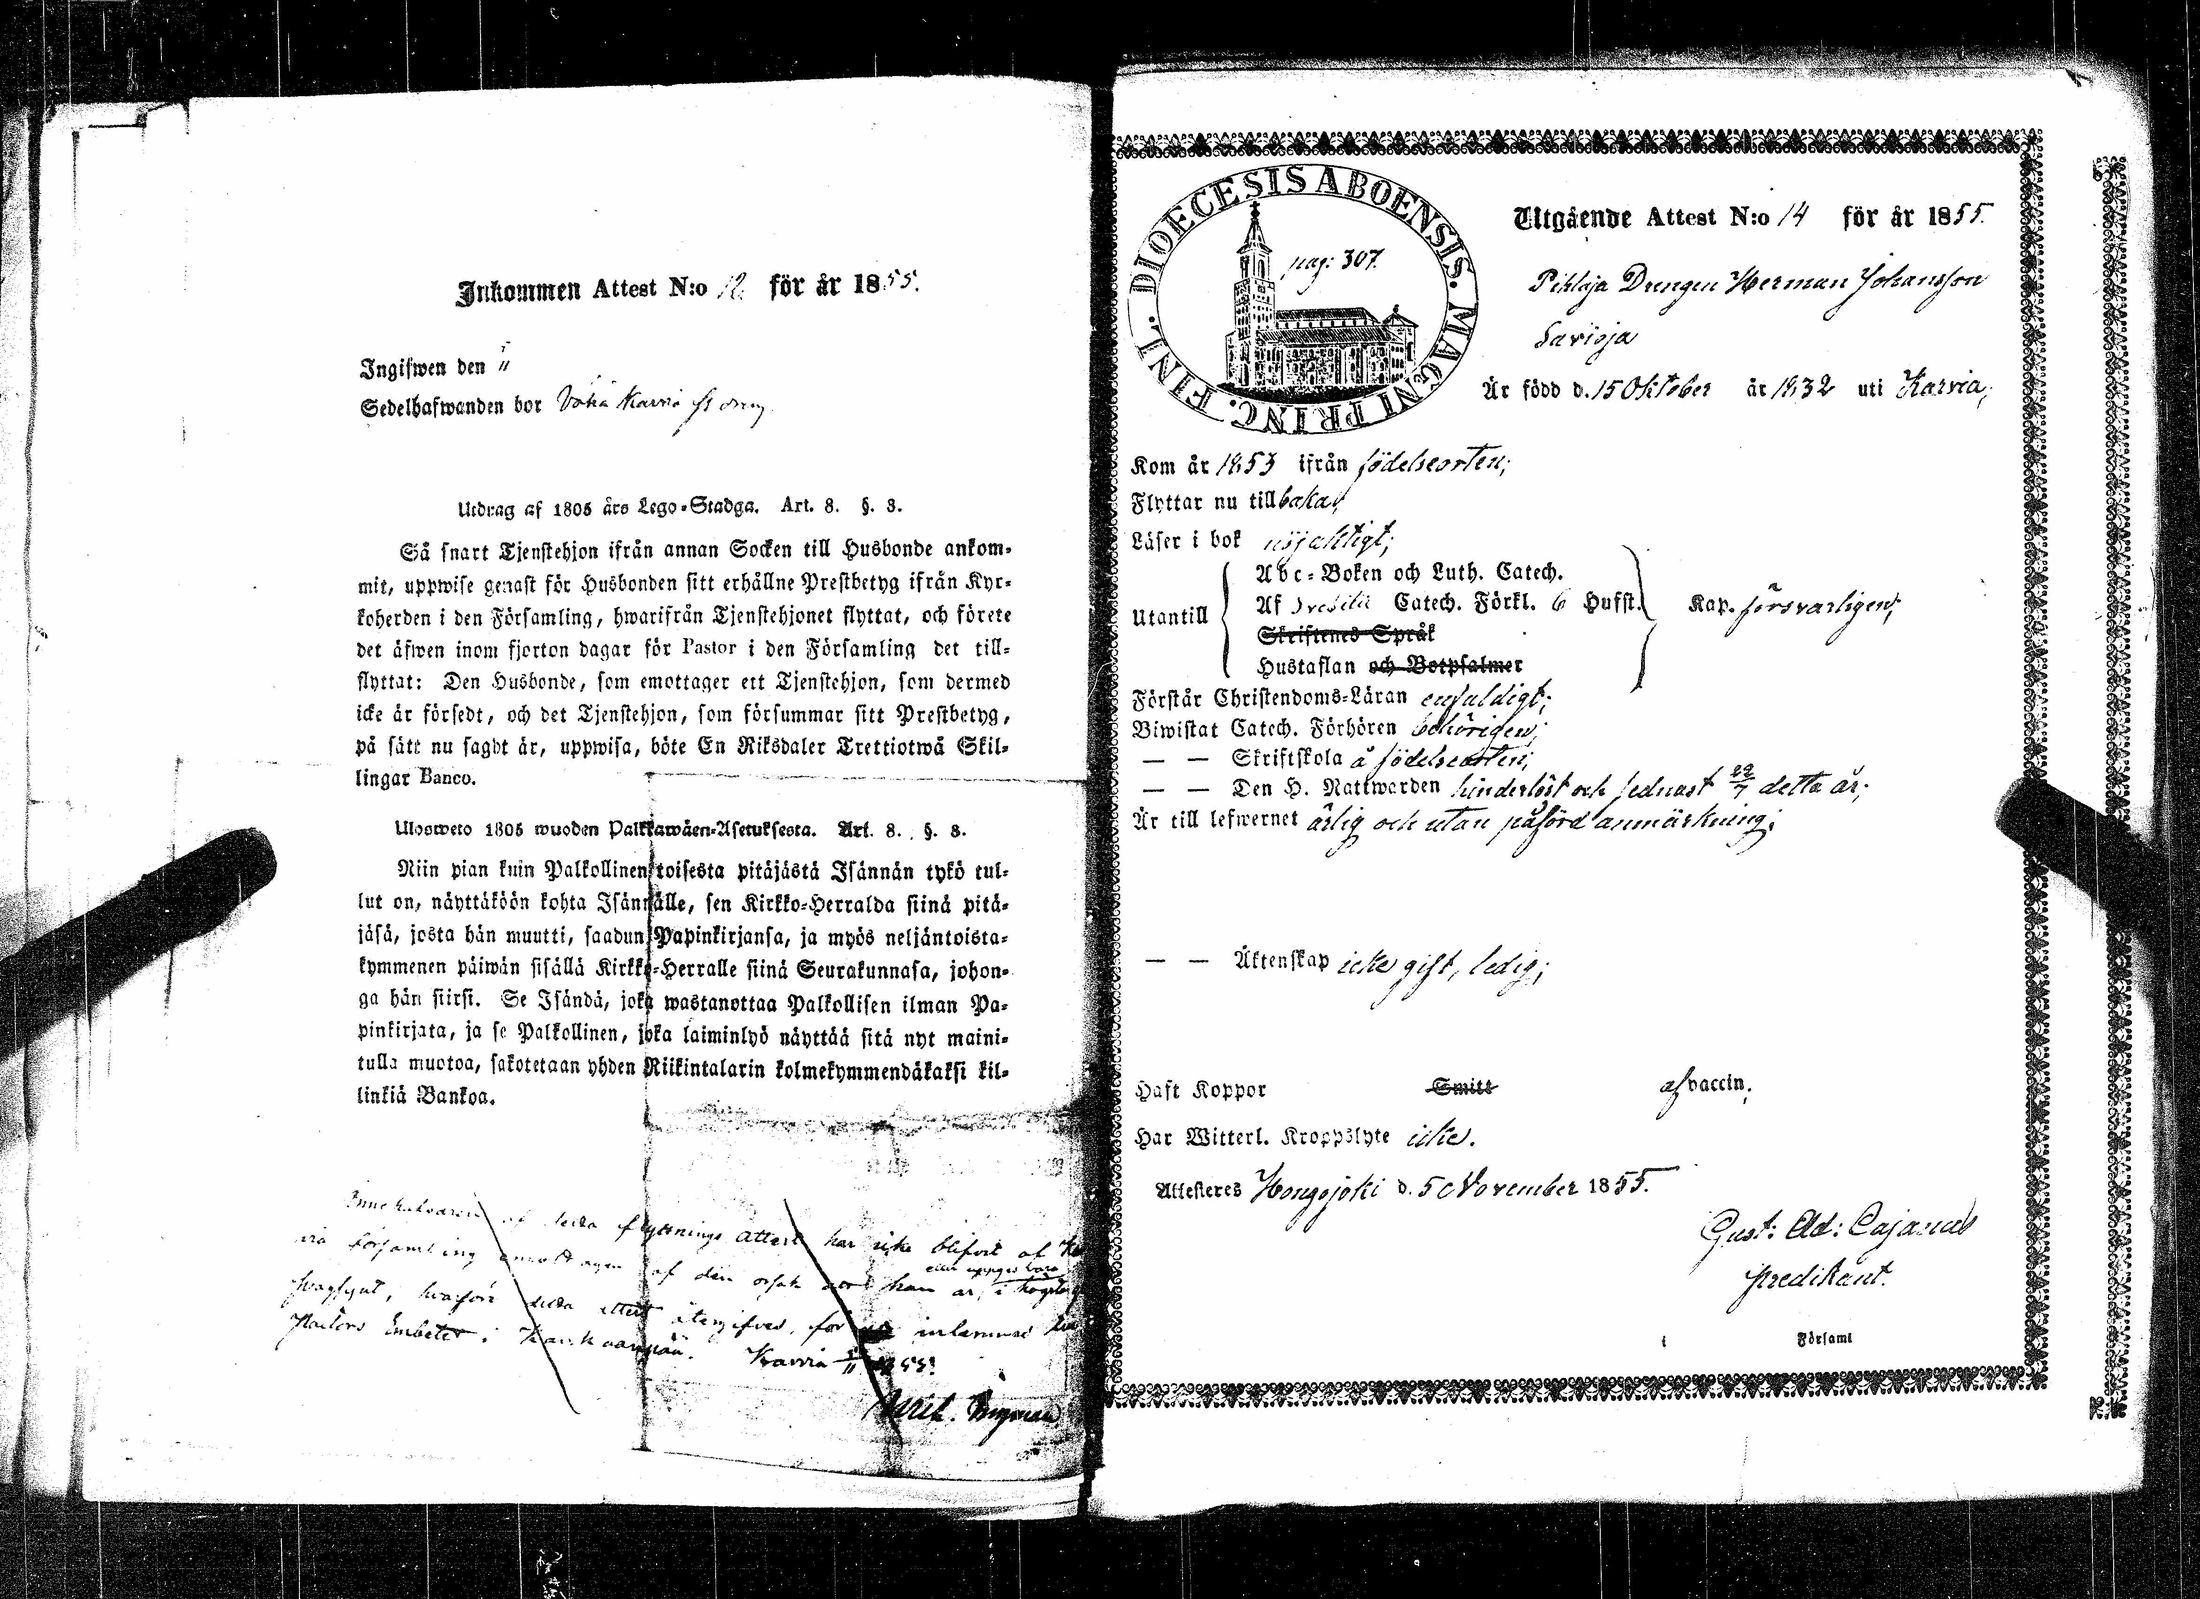 Inkommen Attest N:o 12. för år 1855.
Ingifwen den
Sedelhafwanden bor Karvia
Utdrag af 1805 års Lego-Stadga. Art. 8. §. 3.
Så snart Tjenstehjon ifrån annan Socken till Husbonde ankom-
mit, uppwise genast för Husbonden sitt erhållne Prestbetyg ifrån Kyr-
koherden i den Församling, hwarifrån Tjenstehjonet flyttat, och förete
det äfwen inom fjorton dagar för Pastor i den Församling det till-
flyttat: Den Husbonde, som emottager ett Tjenstehjon, som dermed
icke är försedt, och det Tjenstehjon, som försummar sitt Prestbetyg,
på sätt nu sagdt är, uppwisa, böte En Riksdaler Trettiotwå Skil-
lingar Banco.
Ulosweto 1805 wuoden Palkkawäen-Asetuksesta. Art. 8. §. 3.
Niin pian kuin Palkollinen toisesta pitäjästä Isännän tykö tul-
lut on, näyttäköön kohta Isännälle, sen Kirkko-Herralda siinä pitä-
jäsä, josta hän muutti, saadun Papinkirjansa, ja myös neljäntoista-
kymmenen päiwän sisällä Kirkko-Herralle siinä Seurakunnasa, johon-
ga hän siirsi. Se Isändä, joka wastanottaa Palkollisen ilman Pa-
pinkirjata, ja se Palkollinen, joka laiminlyö näyttää sitä nyt maini-
tulla muotoa, sakotetaan yhden Riikintalarin kolmekymmendäkaksi kil-
linkiä Bankoa.
Innehafvaren af detta flyttnings attest har icke blifvit af
församling emottagen af den orsak att han är
eller uppges vara
hvarföre detta attest återgifves, för
Pastors Embetet i Kankaanpää. Karvia 1855.
Utgående Attest N:o 14 för år 1855.
pag: 307.
DIOECESIS ABOENSIS. MAGNI PRINC. FINL.
Pihlaja Drengen Herman Johansson
Savioja
Är född d. 15 Oktober år 1832 uti Karvia;
Kom år 1853 ifrån födelseorten;
Flyttar nu tillbaka;
Läser i bok nöjaktigt;
Utantill
Abc-Boken och Luth. Catech.
Af Svebilii Catech. Förkl. 6 Hufst. Kap. försvarligen;
Skriftenes Språk
Hustaflan och Botpsalmer
Förstår Christendoms-Läran enfaldigt;
Biwistat Catech. Förhören behörigen;
— — Skriftskola å födelseorten;
— — Den H. Nattwarden hinderlöst och sednast 22/7 detta år;
Är till lefwernet ärlig och utan påförd anmärkning;
— — Äktenskap icke gift, ledig;
Haft Koppor Smitt af vaccin;
Har Witterl. Kroppslyte icke.
Attesteres Hongojoki d. 5 November 1855.
Gust: Ad: Cajanus
predikant.
Församl